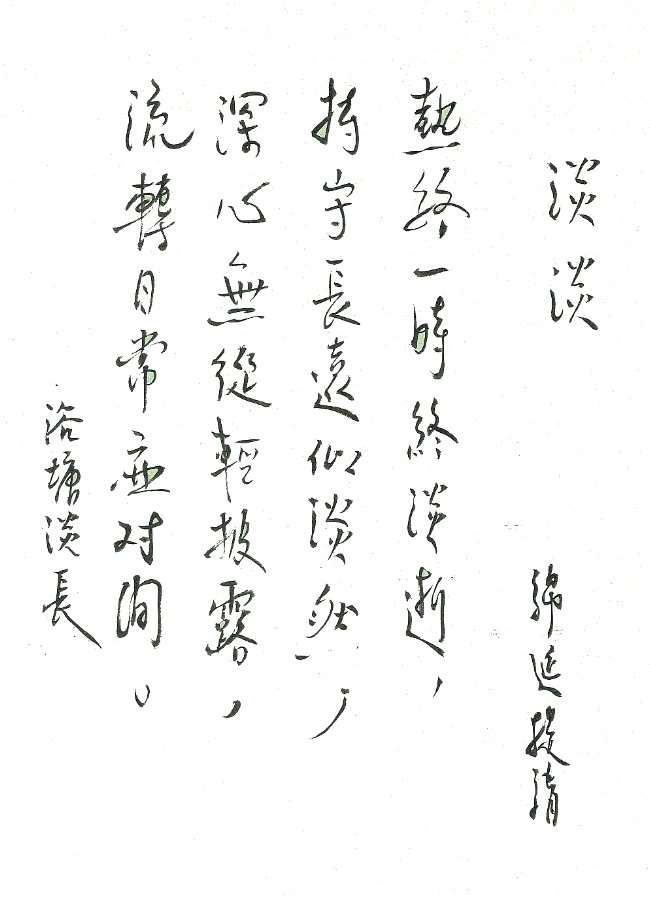 淡淡
綿延提
熱絡一時終淡逝，
持守長遠似淡然，
深心無從輕披露，
流轉日常應对間。
浴塘淡長